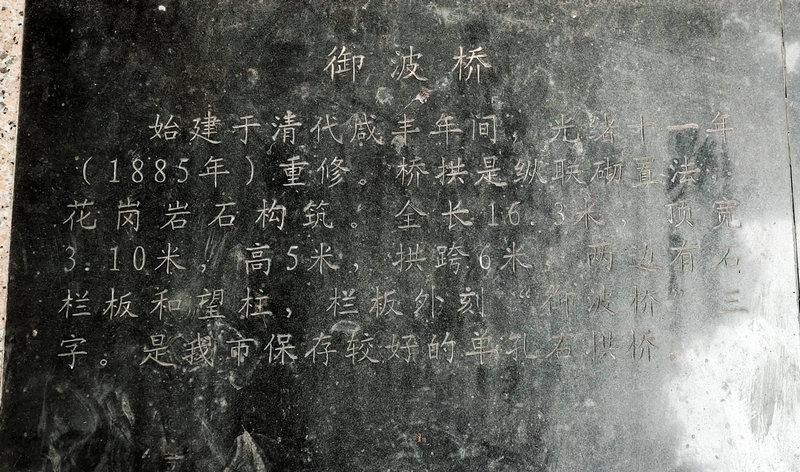 御波桥
始建于清代咸丰年间，光绪十一年
（1885年）重修。桥拱是纵联砌置法，
花岗岩石构筑。全长16.3米，顶宽
3.10米，高5米，拱跨6米，两边有石
栏板和望柱，栏板外刻“御波桥”三
字。是我市保存较好的单孔石拱桥。